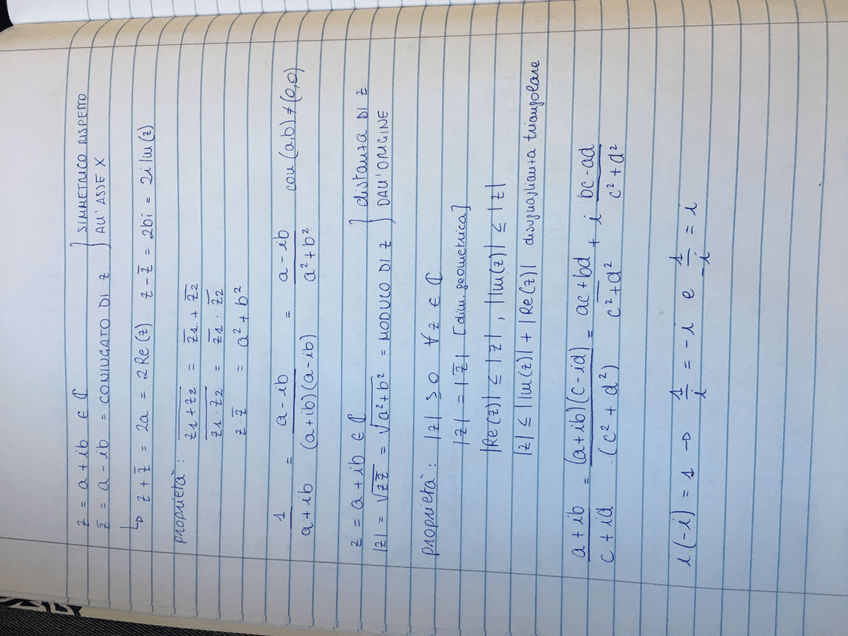 z = a + ib ∈ ℂ
z̄ = a - ib = CONIUGATO DI z } SIMMETRICO RISPETTO ALL'ASSE X
↳ z + z̄ = 2a = 2Re(z)   z - z̄ = 2bi = 2i Im(z)
proprietà: \overline{z1 + z2} = \overline{z1} + \overline{z2}
\overline{z1 · z2} = \overline{z1} · \overline{z2}
z · z̄ = a² + b²
\frac{1}{a+ib} = \frac{a-ib}{(a+ib)(a-ib)} = \frac{a-ib}{a²+b²}   con (a,b) ≠ (0,0)
z = a + ib ∈ ℂ
|z| = \sqrt{z z̄} = \sqrt{a²+b²} = MODULO DI z } distanza DI z DALL'ORIGINE
proprietà: |z| ≥ 0 ∀z ∈ ℂ
|z| = |z̄| [dim geometrica]
|Re(z)| ≤ |z|, |Im(z)| ≤ |z|
|z| ≤ |Im(z)| + |Re(z)| disuguaglianza triangolare
\frac{a+ib}{c+id} = \frac{(a+ib)(c-id)}{(c²+d²)} = \frac{ac+bd}{c²+d²} + i \frac{bc-ad}{c²+d²}
i(-i) = 1 → \frac{1}{i} = -i e \frac{1}{-i} = i